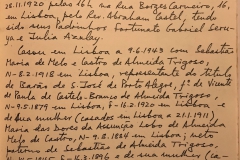 28.11.1920 pelas 16h, na Rua Borges Carneiro, 16,
em Lisboa, pelo Sr. Abraham Castel, tendo
sido seus Padrinhos Fortunato Gabriel Seru-
ya e Julia Azulay.
Casou em Lisboa a 9.6.1963 com Sebastião
Maria de Melo e Castro de Almeida Trigoso,
N-8.2.1918 em Lisboa, representante do título
de Barão de S. José de Porto Alegre, 1º de Vicente
de Paula de Castro de Almeida Trigoso,
N-9.5.1879 em Lisboa, F-16.2.1920 em Lisboa, e
de sua mulher (casados em Lisboa a 21.1.1911)
Maria das Dores da Assunção Lobo de Almeida
Melo de Castro, N-9.8.1886 em Lisboa; neto
paterno de Sebastião de Almeida Trigoso,
1845, F-16.3.1896 e de sua mulher (ca-